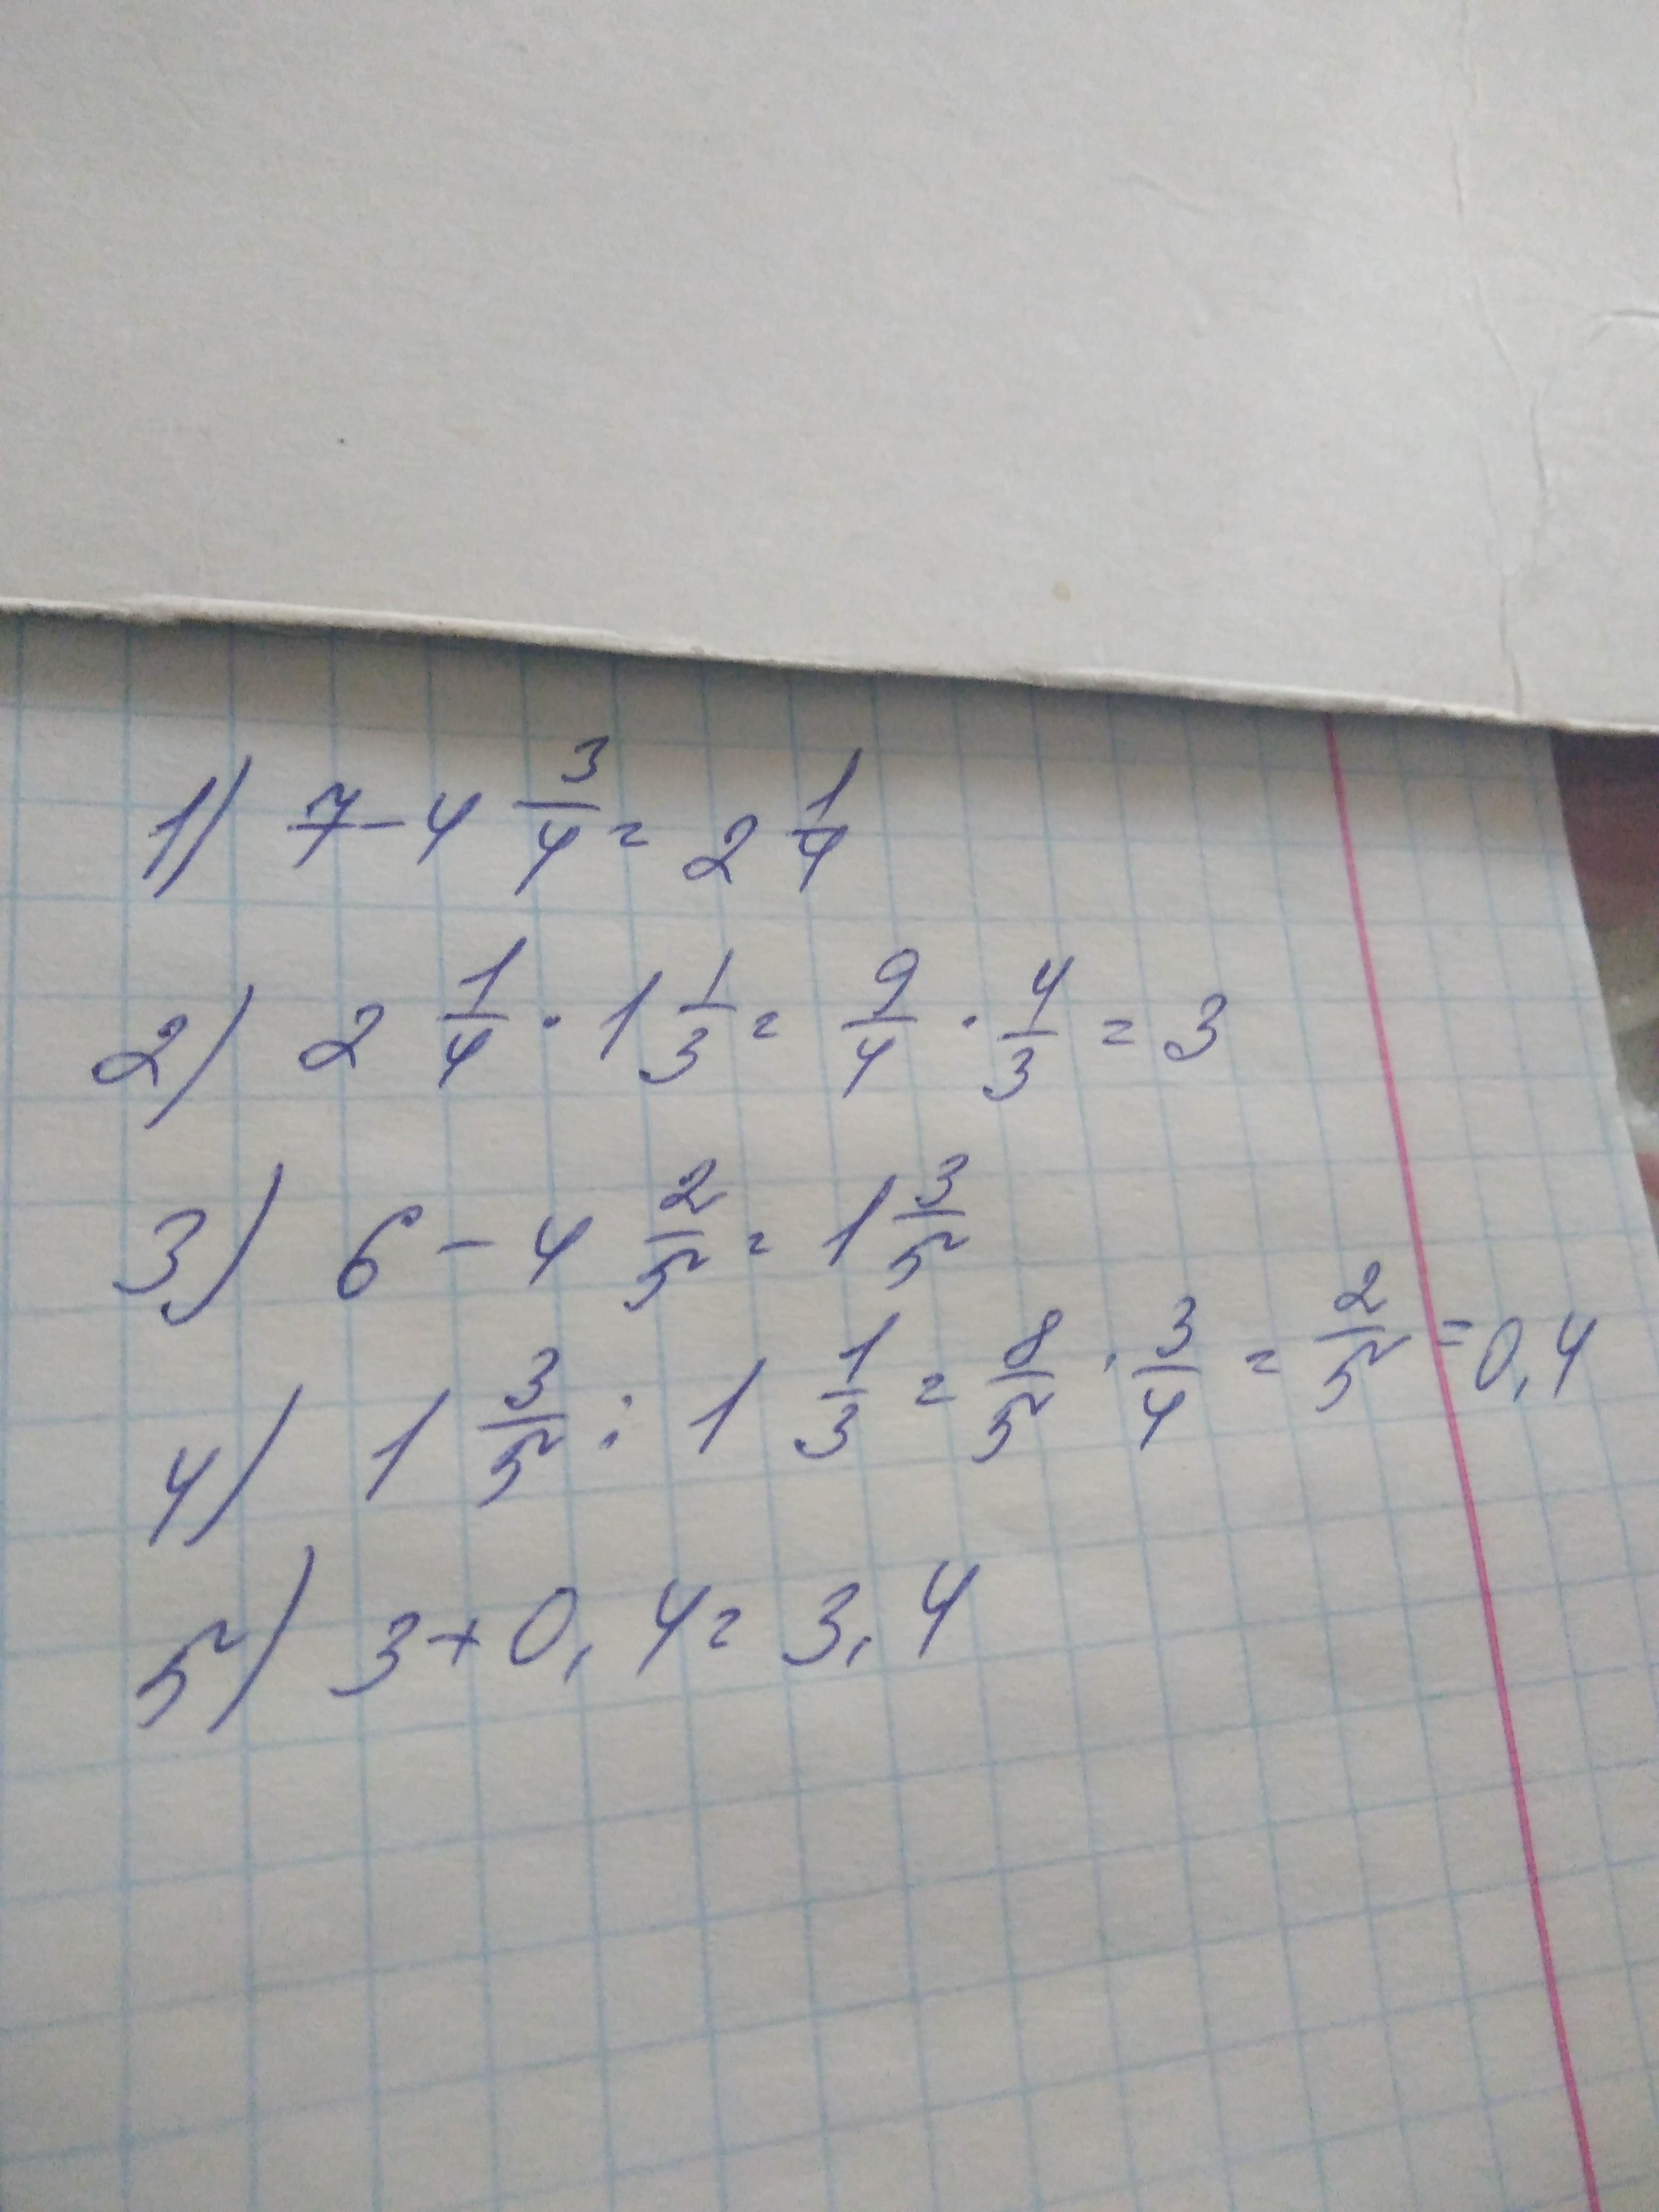 1) 7 - 4 3/4 = 2 1/4
2) 2 1/4 · 1 1/3 = 9/4 · 4/3 = 3
3) 6 - 4 2/5 = 1 3/5
4) 1 3/5 : 1 1/3 = 8/5 · 3/4 = 2/5 = 0,4
5) 3 + 0,4 = 3,4